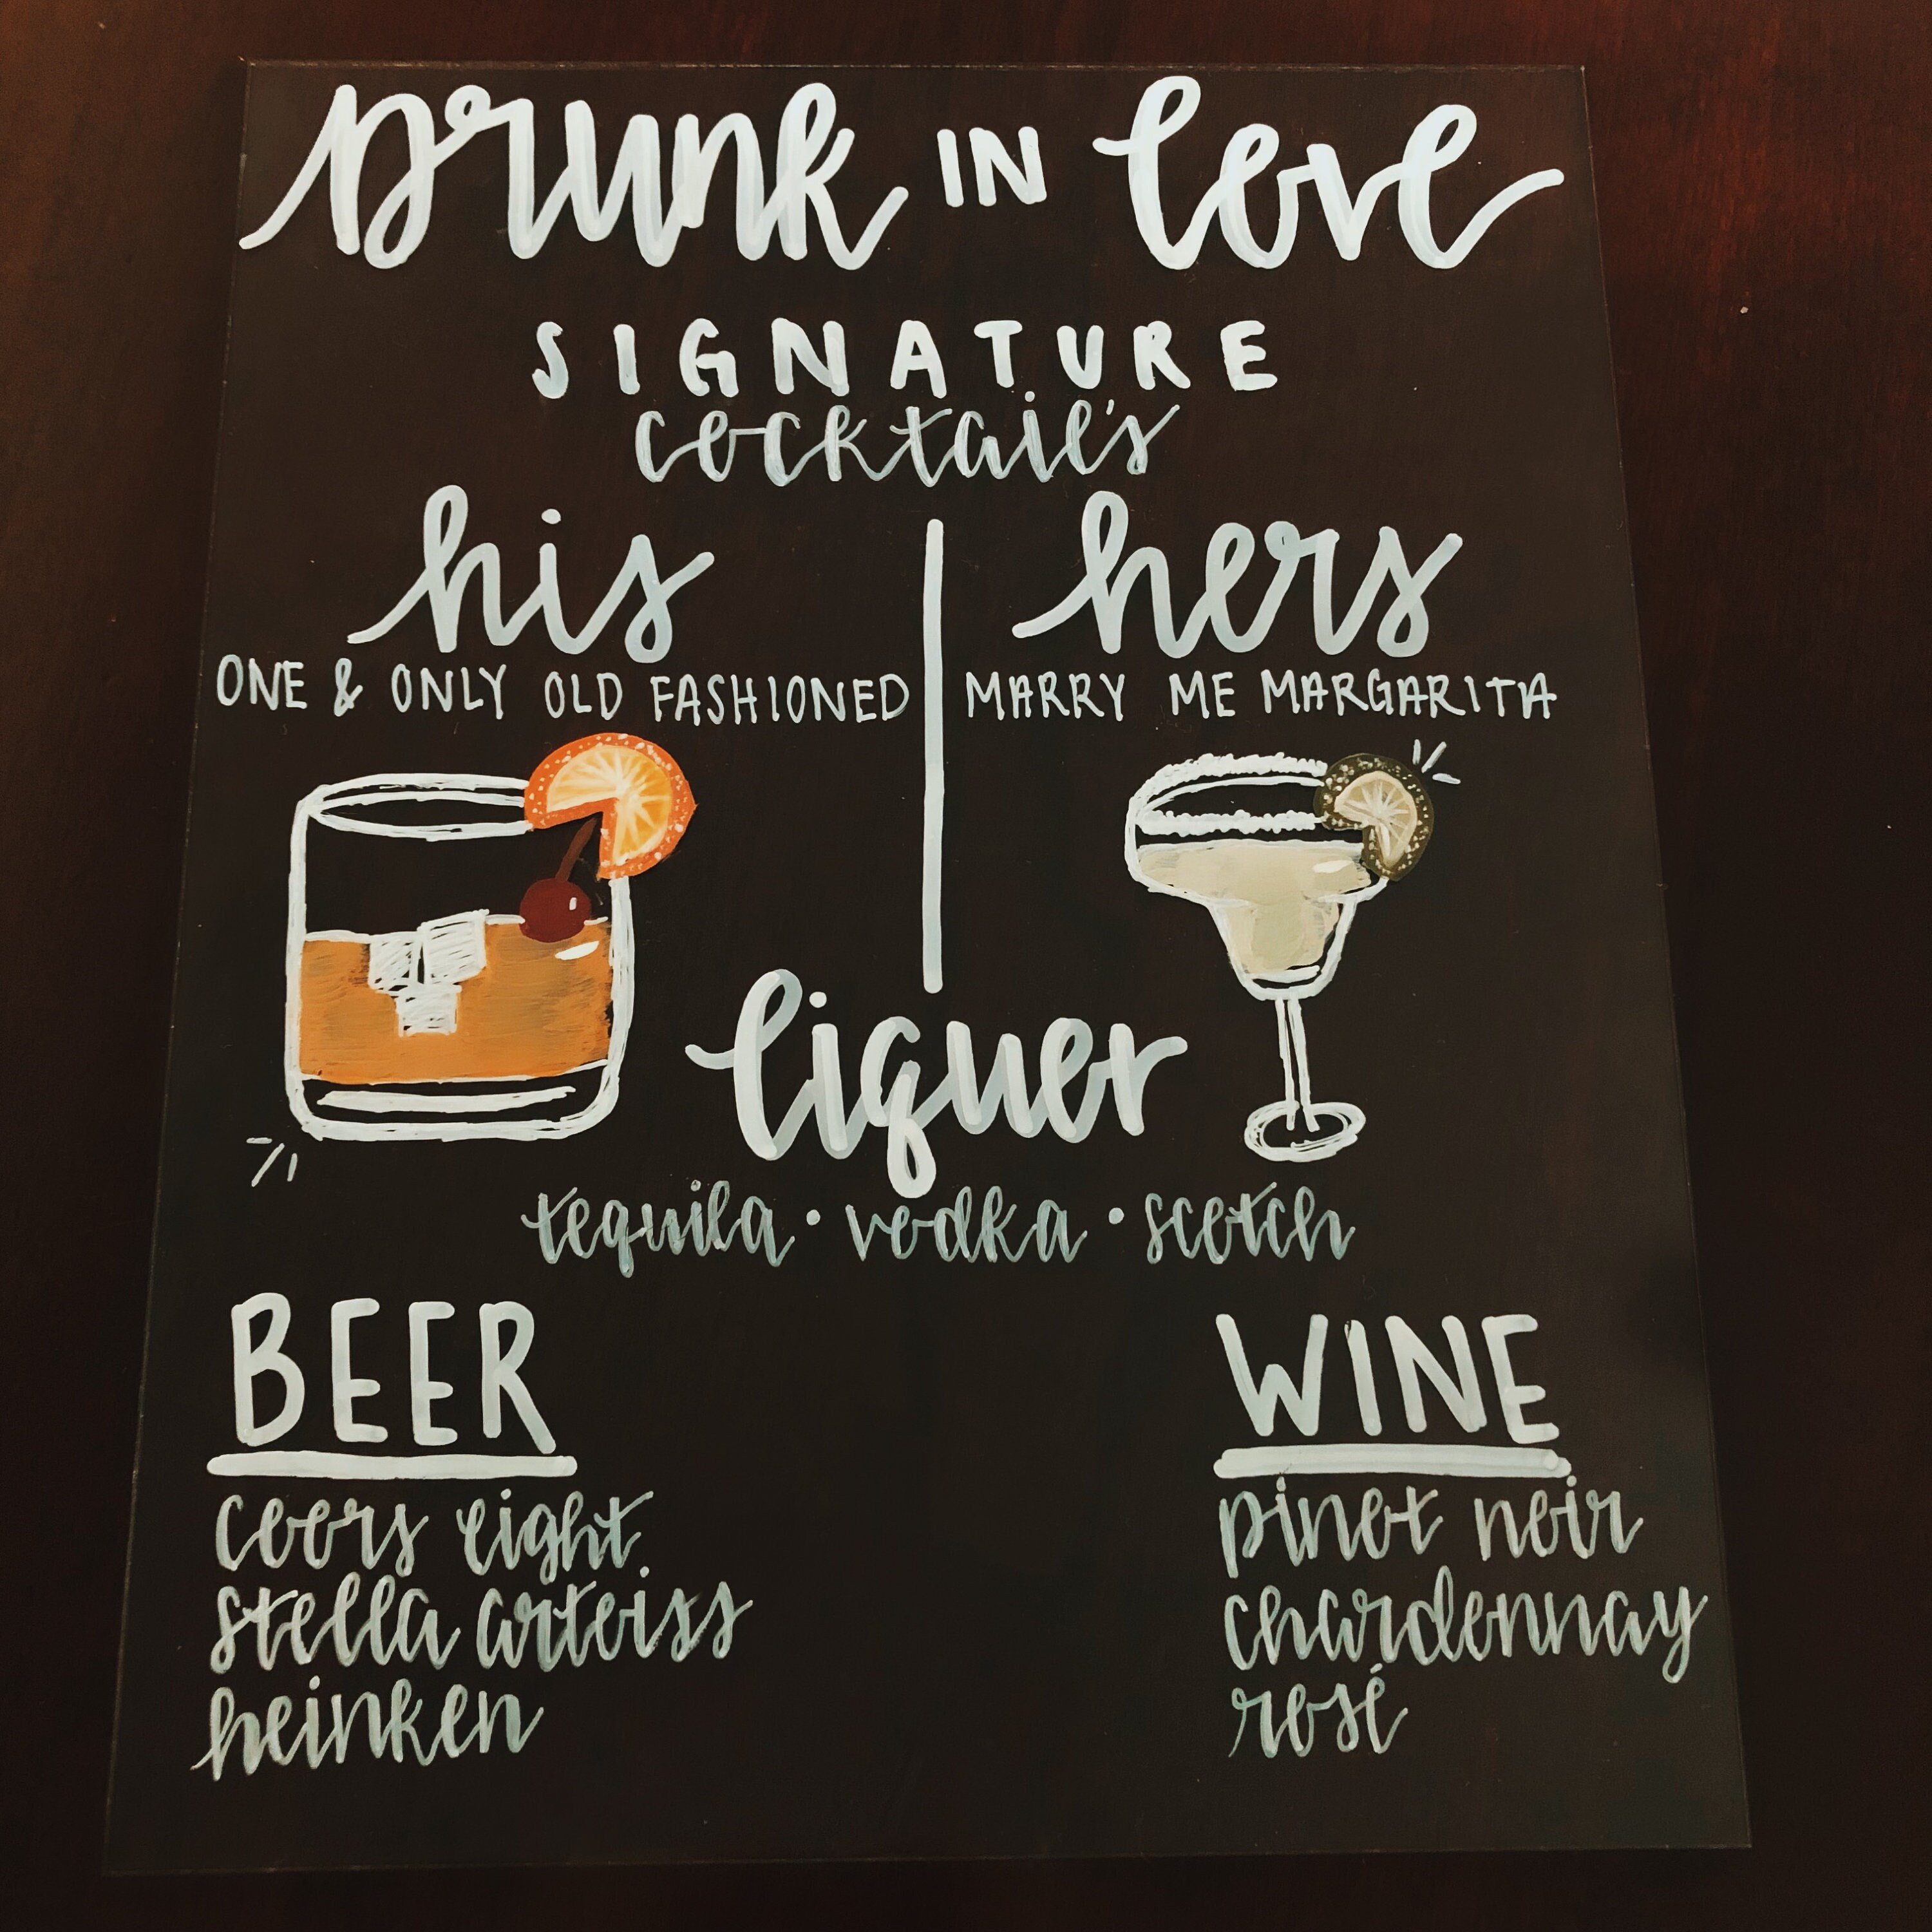 Drunk IN love
SIGNATURE
cocktail's
his hers
ONE & ONLY OLD FASHIONED MARRY ME MARGARITA
liquor
tequila • vodka • scotch
BEER
coors light
stella artoiss
heinken
WINE
pinot noir
chardonnay
rosé